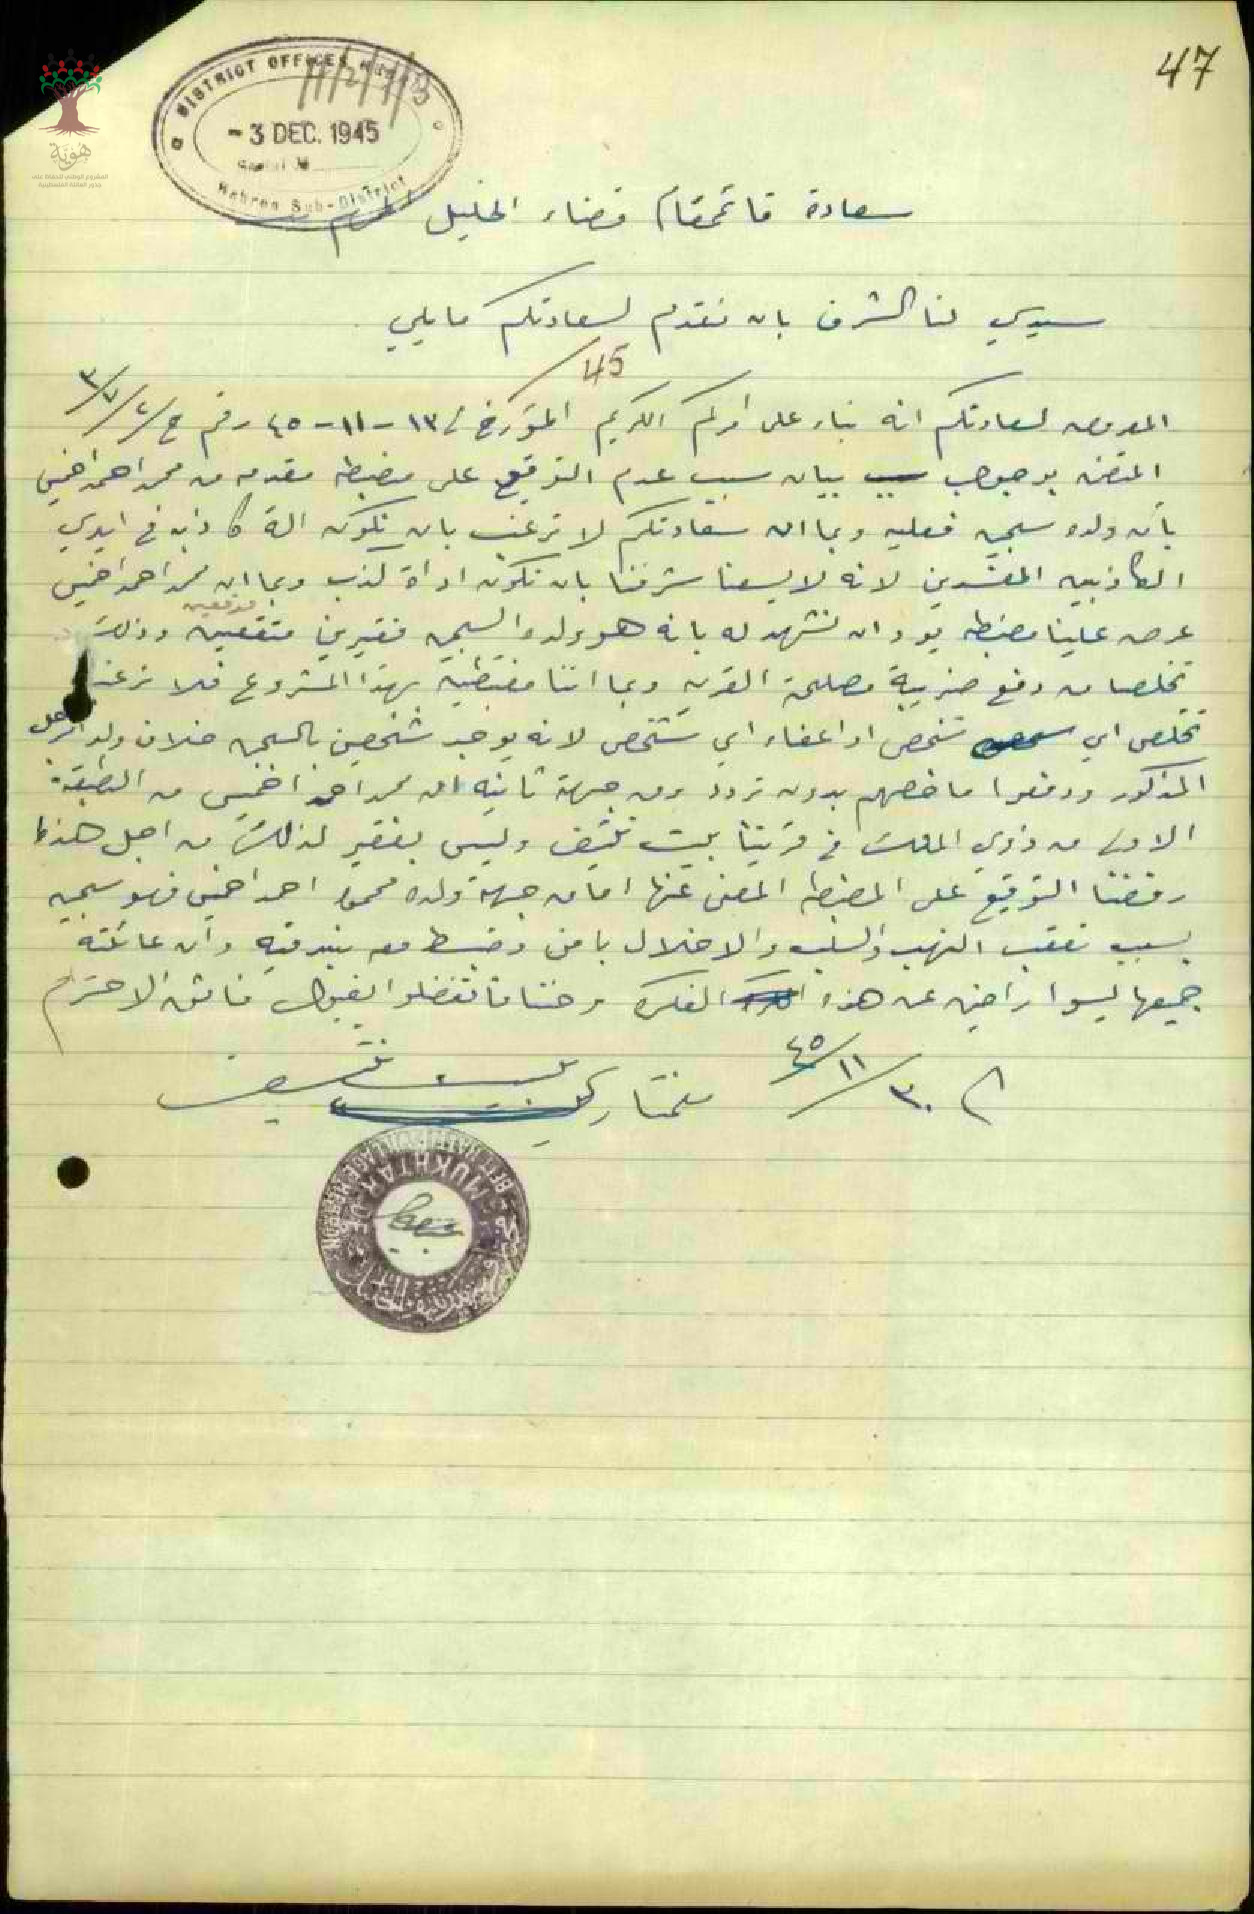 47
DISTRICT OFFICES
- 3 DEC. 1945
Hebron Sub-District
سعادة قائمقام قضاء الخليل المحترم
سيدي لنا الشرف بان نقدم لسعادتكم ما يلي
45
المعروض لسعادتكم انه بناء على امركم الكريم المؤرخ في ١٣-١١-٤٥ رقم خ/٢/٧/٣
المتضمن بوجوب بيان سبب عدم التوقيع على مضبطه مقدمه من محمد احمد اخميس
بأن ولده سجين فعليه وبما ان سعادتكم لا ترغب بان تكون الة كاذبه في ايدي
الكاذبين المفسدين لانه لا يسعنا شرفنا بان نكون اداة لكذب وبما ان محمد احمد اخميس
عرض علينا مضبطه يود ان نشهد له بانه هو وولده السجين فقيرين وذلك
تخلصا من دفع ضريبة مصلحة القريه وبما اننا مغتبطين بهذا المشروع فلا نرغب
تخلص اي شخص او اعفاء اي شخص لانه يوجد شخصين بالسجن خلاف ولد الرجل
المذكور ودفعوا ما خصهم بدون تردد ومن جهة ثانيه ان محمد احمد اخميس من الطبقة
الاولى من ذوي الملاك في قريتنا بيت نتيف وليس بفقير لذلك من اجل هذا
رفضنا التوقيع على المضبطه عنها اما من جهة ولده محمود احمد اخميس فهو سجين
بسبب النهب والسلب والاخلال بامن وضبط معه بندقيه وان عائلته
جميعها ليسوا راضين عن هذه الفكره وختاما تفضلوا بقبول فائق الاحترام
٣٠/١١/٤٥
مختار بيت نتيف
MUKHTAR DE
BEIT NATTIF VILLAGE HEBRON